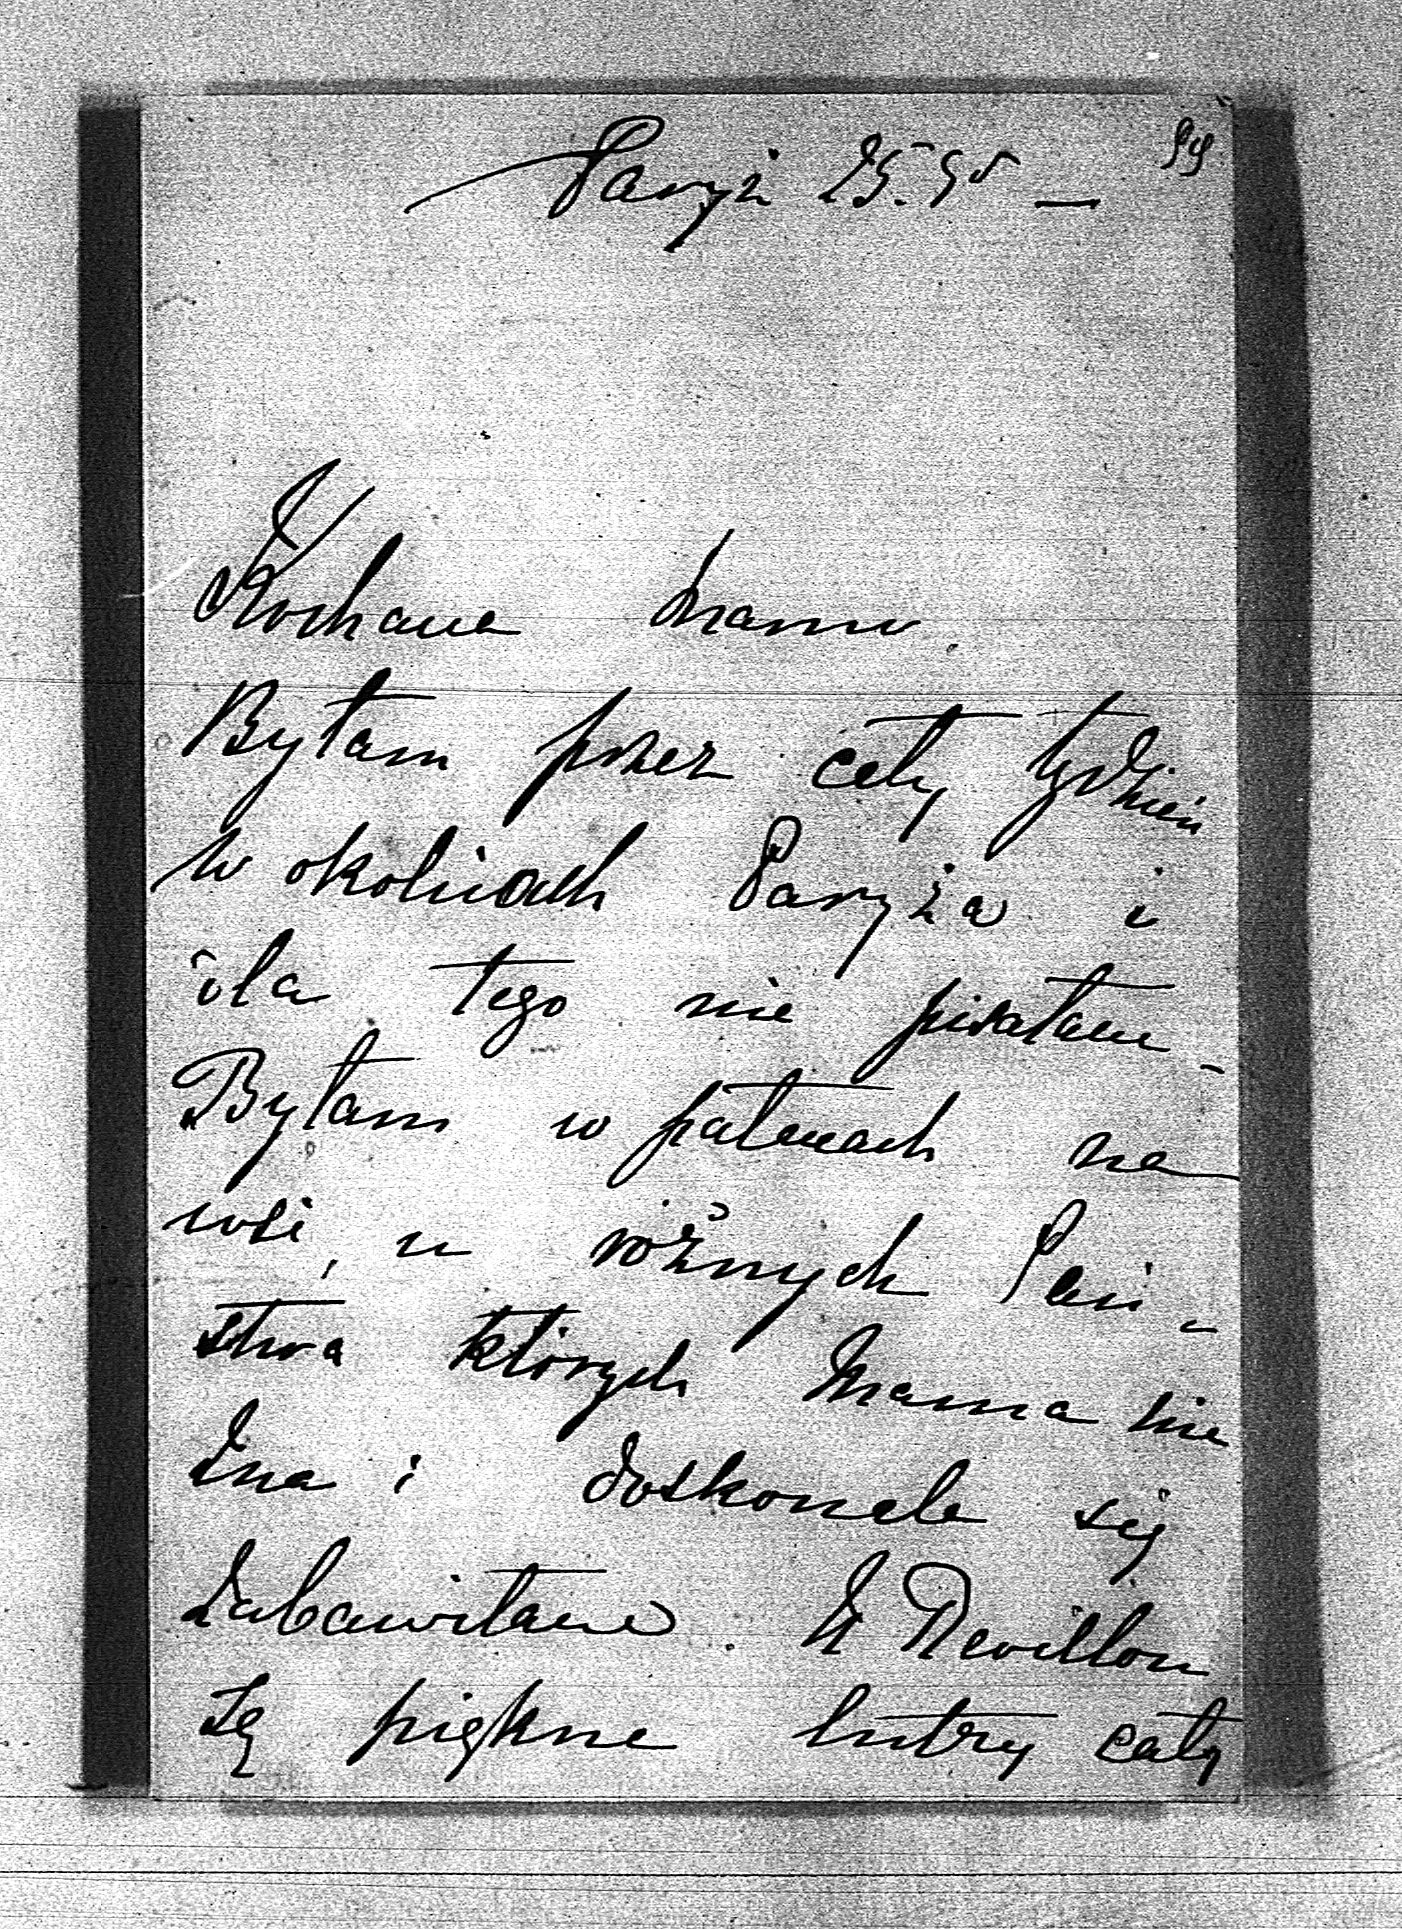 Paryż 25. 9
Kochana Mamo
Byłam przez cały tydzień
w okolicach Paryża i
dla tego nie pisałam -
Byłam w pałacach na
wsi, u różnych Pań-
stwa których Mama nie
zna i doskonale się
zabawiłam. U Revillon
są piękne lutry cały